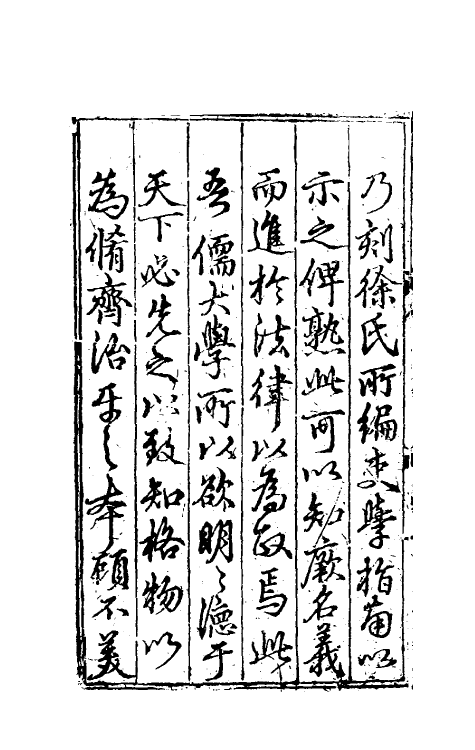 乃刻徐氏所編吏學指南以
示之俾熟此可以知厥名義
而進於法律以為政焉此
吾儒大學所以欲明〻德于
天下必先之以致知格物以
為脩齊治平之本顧不美